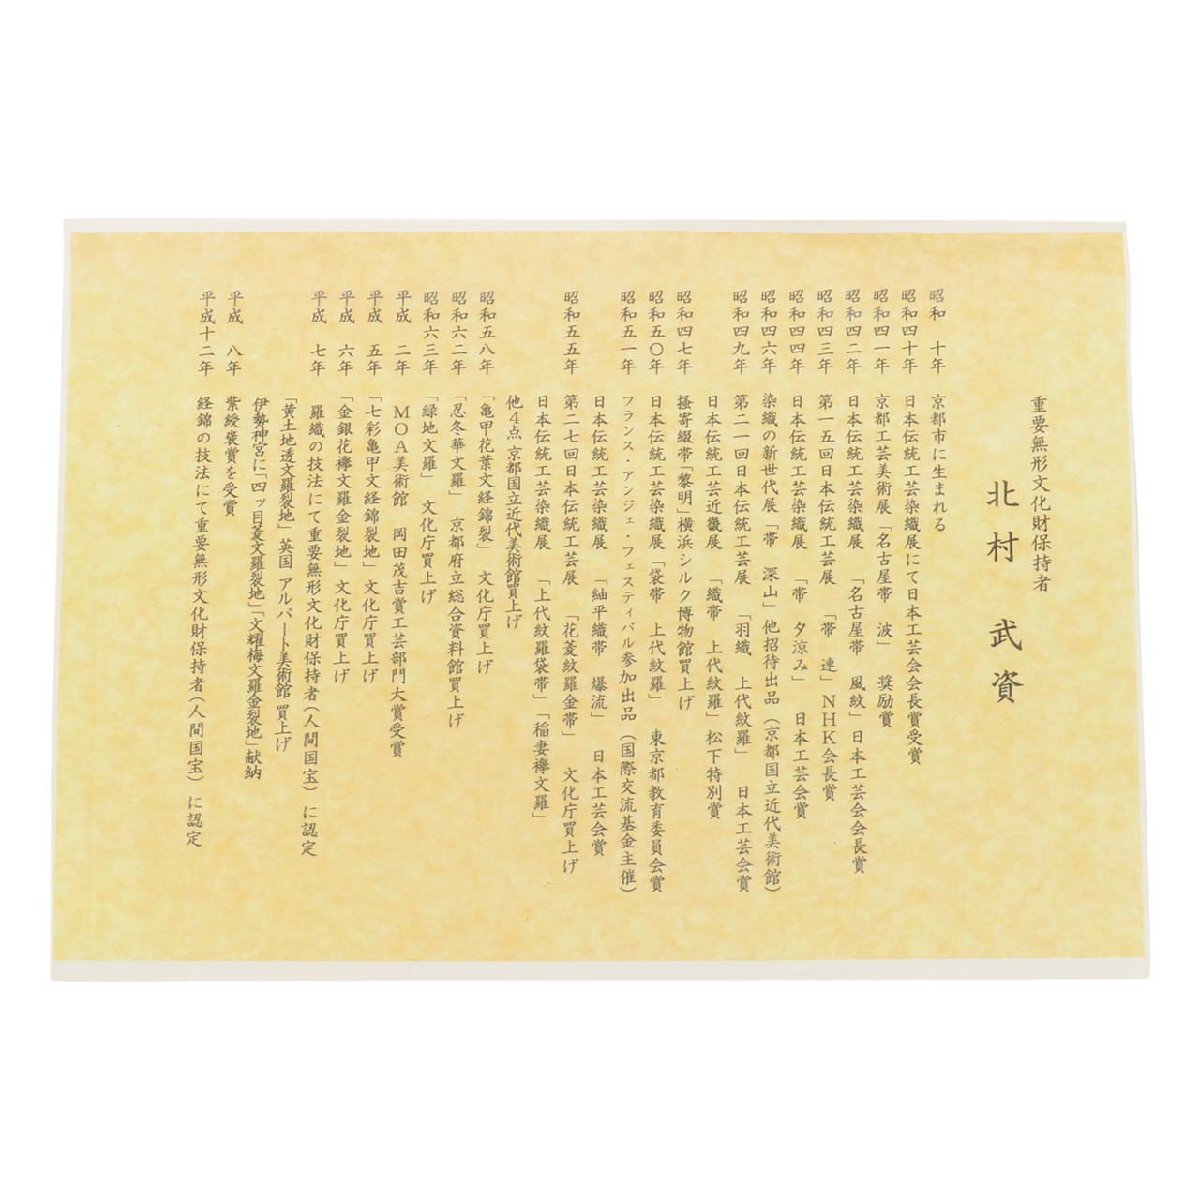 重要無形文化財保持者
北村 武資
昭和 十年 京都市に生まれる
昭和四十年 日本伝統工芸染織展にて日本工芸会会長賞受賞
昭和四一年 京都工芸美術展「名古屋帯 波」 奨励賞
昭和四二年 日本伝統工芸染織展 「名古屋帯 風紋」日本工芸会会長賞
昭和四三年 第一五回日本伝統工芸展 「帯 連」NHK会長賞
昭和四四年 日本伝統工芸染織展 「帯 夕涼み」 日本工芸会賞
昭和四六年 染織の新世代展「帯 深山」他招待出品(京都国立近代美術館)
昭和四九年 第二一回日本伝統工芸展 「羽織 上代紋羅」 日本工芸会賞
日本伝統工芸近畿展 「織帯 上代紋羅」松下特別賞
昭和四七年 掻寄綴帯「黎明」横浜シルク博物館買上げ
昭和五〇年 日本伝統工芸染織展「袋帯 上代紋羅」 東京都教育委員会賞
昭和五一年 フランス・アンジェ・フェスティバル参加出品(国際交流基金主催)
日本伝統工芸染織展 「紬平織帯 爆流」 日本工芸会賞
昭和五五年 第二七回日本伝統工芸展 「花菱紋羅金帯」 文化庁買上げ
日本伝統工芸染織展 「上代紋羅袋帯」「稲妻襷文羅」
他4点京都国立近代美術館買上げ
昭和五八年 「亀甲花葉文経錦裂」 文化庁買上げ
昭和六二年 「忍冬華文羅」 京都府立総合資料館買上げ
昭和六三年 「緑地文羅」 文化庁買上げ
平成 二年 MOA美術館 岡田茂吉賞工芸部門大賞受賞
平成 五年 「七彩亀甲文経錦裂地」文化庁買上げ
平成 六年 「金銀花襷文羅金裂地」文化庁買上げ
平成 七年 羅織の技法にて重要無形文化財保持者(人間国宝)に認定
「黄土地透文羅裂地」英国 アルバート美術館 買上げ
伊勢神宮に「四ッ目菱文羅裂地」「文耀梅文羅金裂地」献納
平成 八年 紫綬褒賞を受賞
平成十二年 経錦の技法にて重要無形文化財保持者(人間国宝)に認定